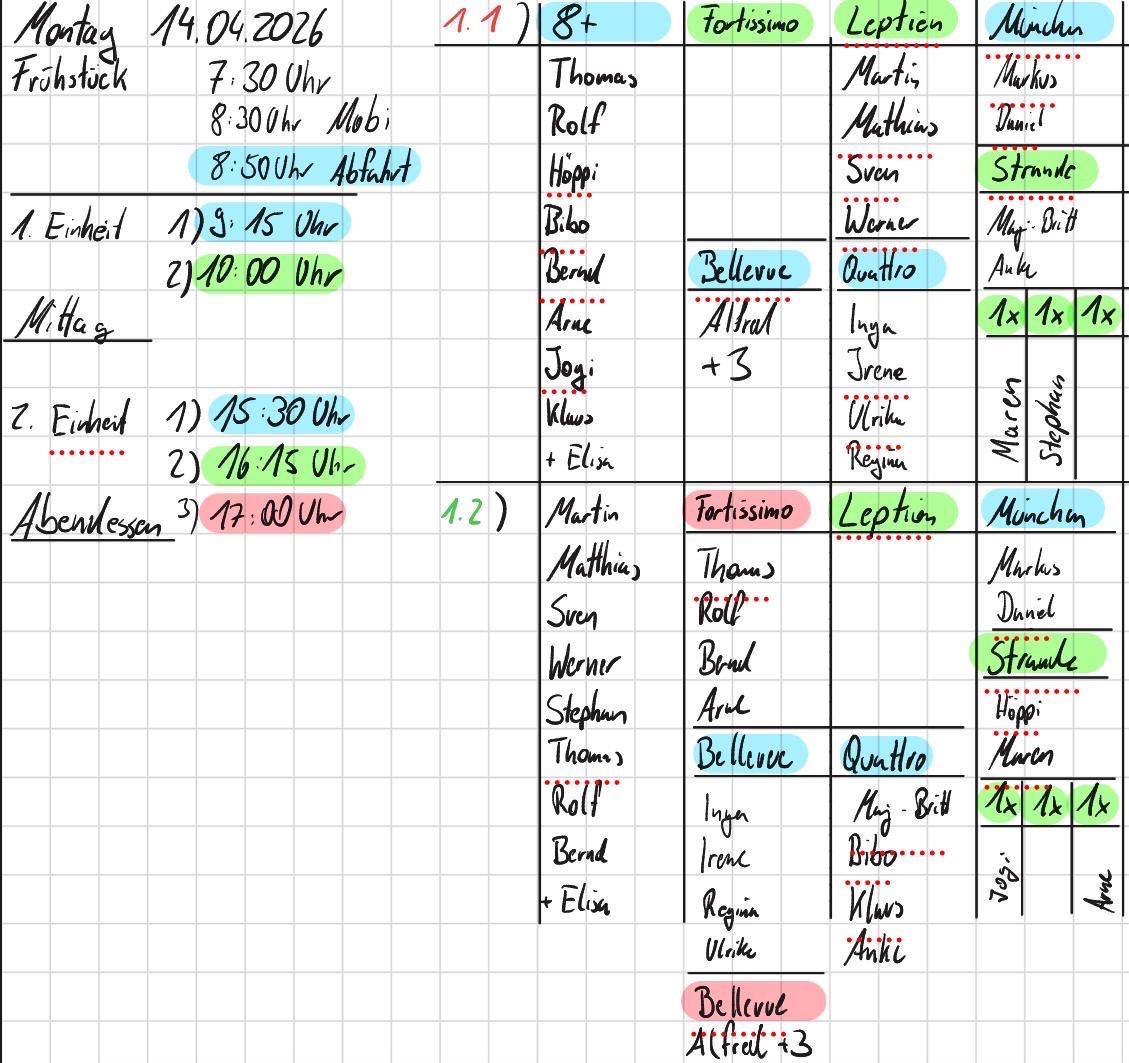 Montag 14.04.2026
Frühstück 7:30 Uhr
8:30 Uhr Mobi
8:50 Uhr Abfahrt
1. Einheit 1) 9:15 Uhr
2) 10:00 Uhr
Mittag
2. Einheit 1) 15:30 Uhr
2) 16:15 Uhr
Abendessen 3) 17:00 Uhr
1.1)
8+
Thomas
Rolf
Höppi
Bibo
Bernd
Arne
Jogi
Klaus
+ Elisa
Fortissimo
Bellevue
Alfred
+3
Leptien
Martin
Mathias
Sven
Werner
Quattro
Inga
Irene
Ulrike
Regina
München
Markus
Daniel
Strande
Maj-Britt
Anke
1x 1x 1x
Maren
Stephan
1.2)
Martin
Matthias
Sven
Werner
Stephan
Thomas
Rolf
Bernd
+ Elisa
Fortissimo
Thomas
Rolf
Bernd
Arne
Bellevue
Inga
Irene
Regina
Ulrike
Bellevue
Alfred +3
Leptien
Quattro
Maj-Britt
Bibo
Klaus
Anke
München
Markus
Daniel
Strande
Höppi
Maren
1x 1x 1x
Jogi
Arne